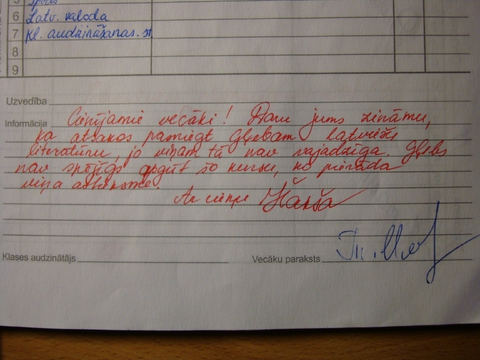 5
6 Latv. valoda
7 Kl. audzināšanas st.
8
9
Uzvedība
Informācija Cienījamie vecāki! Daru jums zināmu,
ka atsakos pasniegt Gļebam latviešu
literatūru, jo viņam tā nav vajadzīga. Gļebs
nav spējīgs apgūt šo kursu, ko pierāda
viņa attieksme.
Ar cieņu
Klases audzinātājs Vecāku paraksts